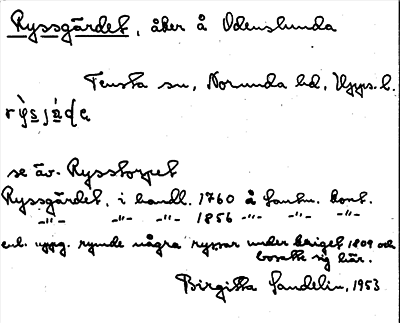 Ryssgärdet, åker å Odenslunda
Tensta sn, Norunda hd, Upps. l.
se äv. Rysstorpet
Ryssgärdet, i handl. 1760 å lantm. kont.
-"- -"- -"- 1856 -"- -"- -"-
enl. uppg. rymde några ryssar under kriget 1809 och
bosatte sig här.
Birgitta Sandelin, 1953